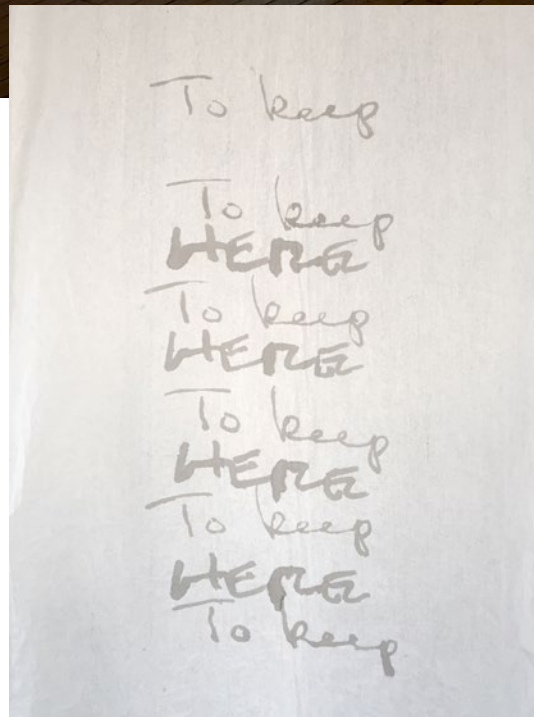 To keep
To keep
HERE
To keep
HERE
To keep
HERE
To keep
HERE
To keep